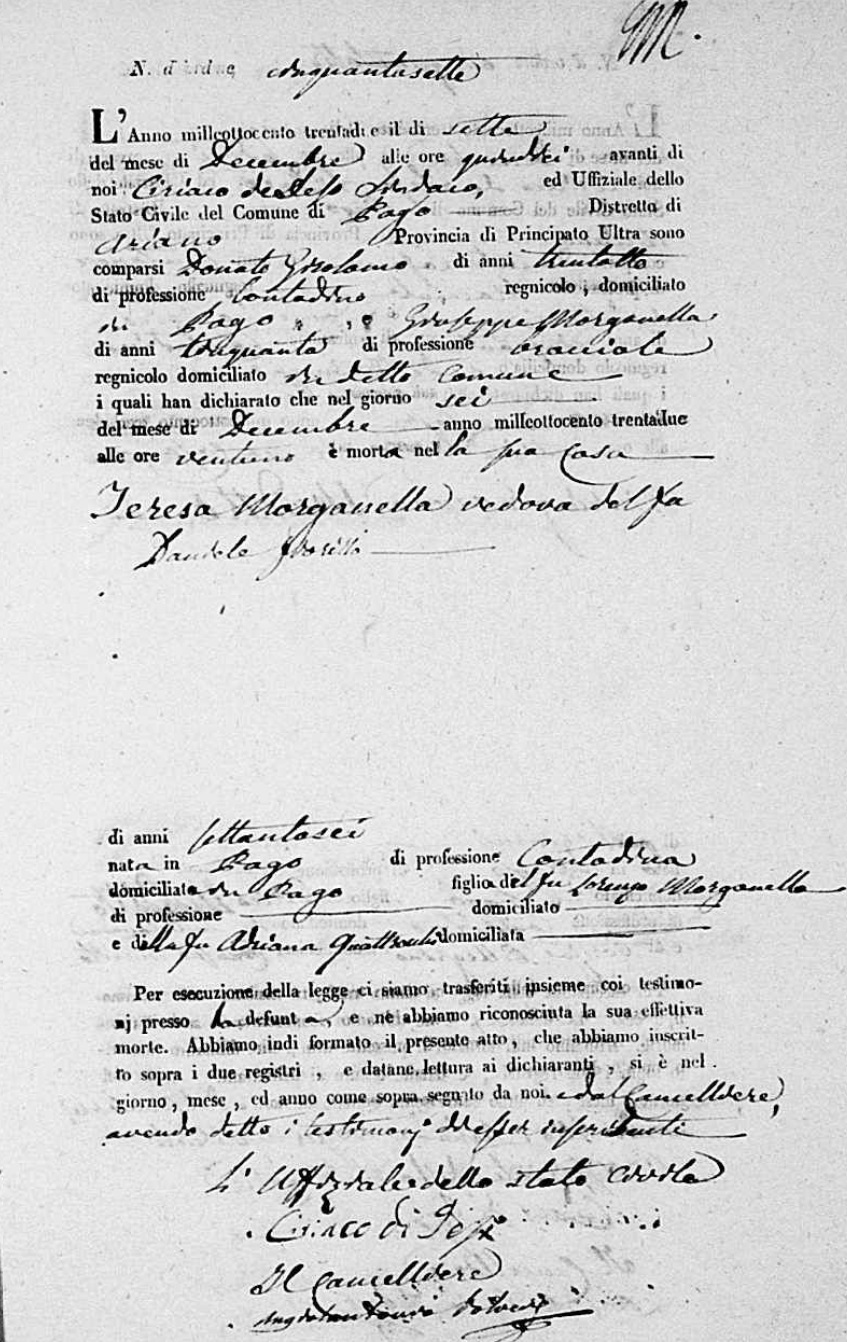 M.
N. d'ordine cinquantasette
L'Anno millcottocento trentadue il di sette
del mese di Decembre alle ore quindeci avanti di
noi Ciriaco de Sindaco, ed Uffiziale dello
Stato Civile del Comune di Pago Distretto di
Ariano Provincia di Principato Ultra sono
comparsi Donato Girolamo di anni trentotto
di professione Contadino regnicolo, domiciliato
in Pago, e Giuseppe Morganella
di anni cinquanta di professione bracciale
regnicolo domiciliato in detto Comune
i quali han dichiarato che nel giorno sei
del mese di Decembre anno millcottocento trentadue
alle ore ventuno è morta nella sua Casa
Teresa Morganella vedova del fu
Daniele
di anni settantasei
nata in Pago di professione Contadina
domiciliata in Pago figlia del fu Lorenzo Morganella
di professione domiciliato
e della fu Adriana domiciliata
Per esecuzione della legge ci siamo trasferiti insieme coi testimo-
nj presso la defunta, e ne abbiamo riconosciuta la sua effettiva
morte. Abbiamo indi formato il presente atto, che abbiamo inscrit-
to sopra i due registri, e datane lettura ai dichiaranti, si è nel
giorno, mese, ed anno come sopra segnato da noi e dal Cancelliere,
avendo detto i testimonj di esser
L'Uffiziale dello stato civile
Ciriaco di
Il Cancelliere